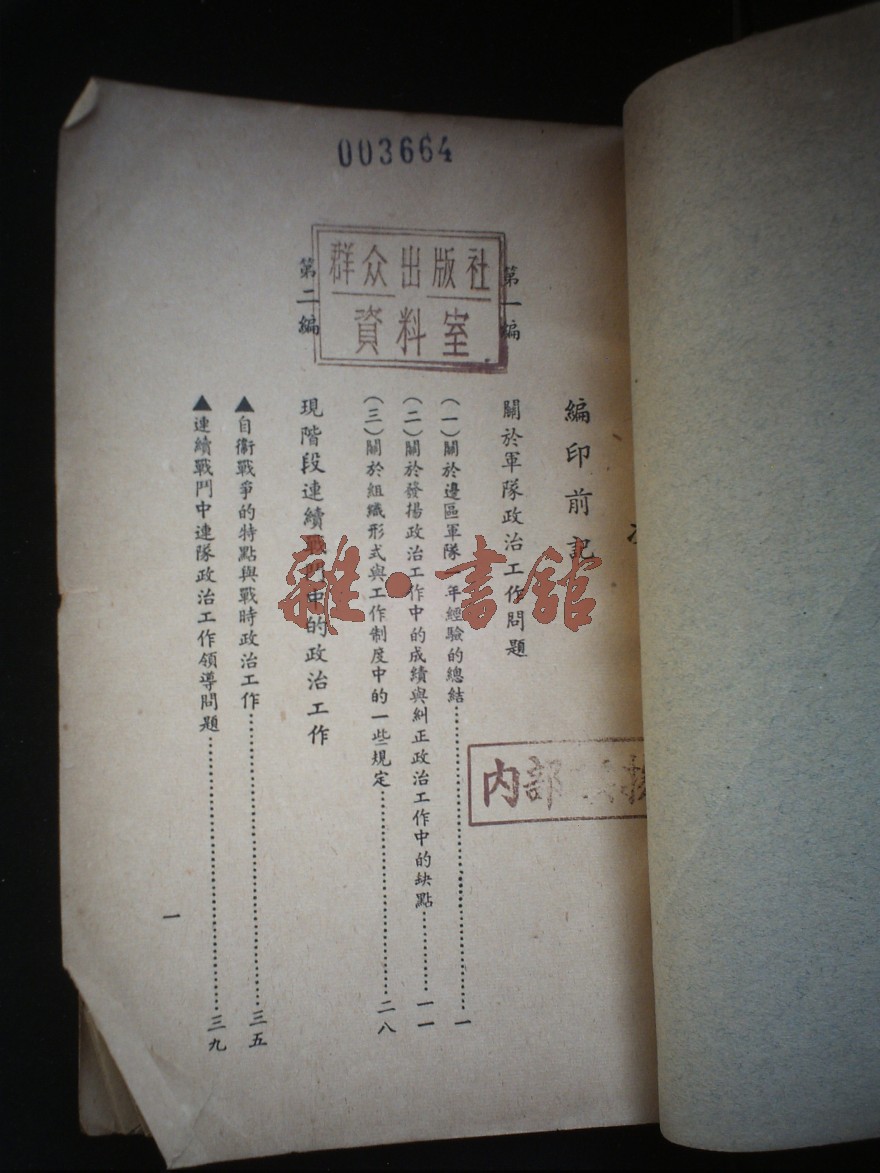 003664
群众出版社
資料室
次
編印前記
第一編
關於軍隊政治工作問題
(一)關於邊區軍隊 年經驗的總結……一
(二)關於發揚政治工作中的成績與糾正政治工作中的缺點……一一
(三)關於組織形式與工作制度中的一些規定……二八
第二編
現階段連續戰鬥中的政治工作
▲自衛戰爭的特點與戰時政治工作……三五
▲連續戰鬥中連隊政治工作領導問題……三九
一
内部
雜·書館